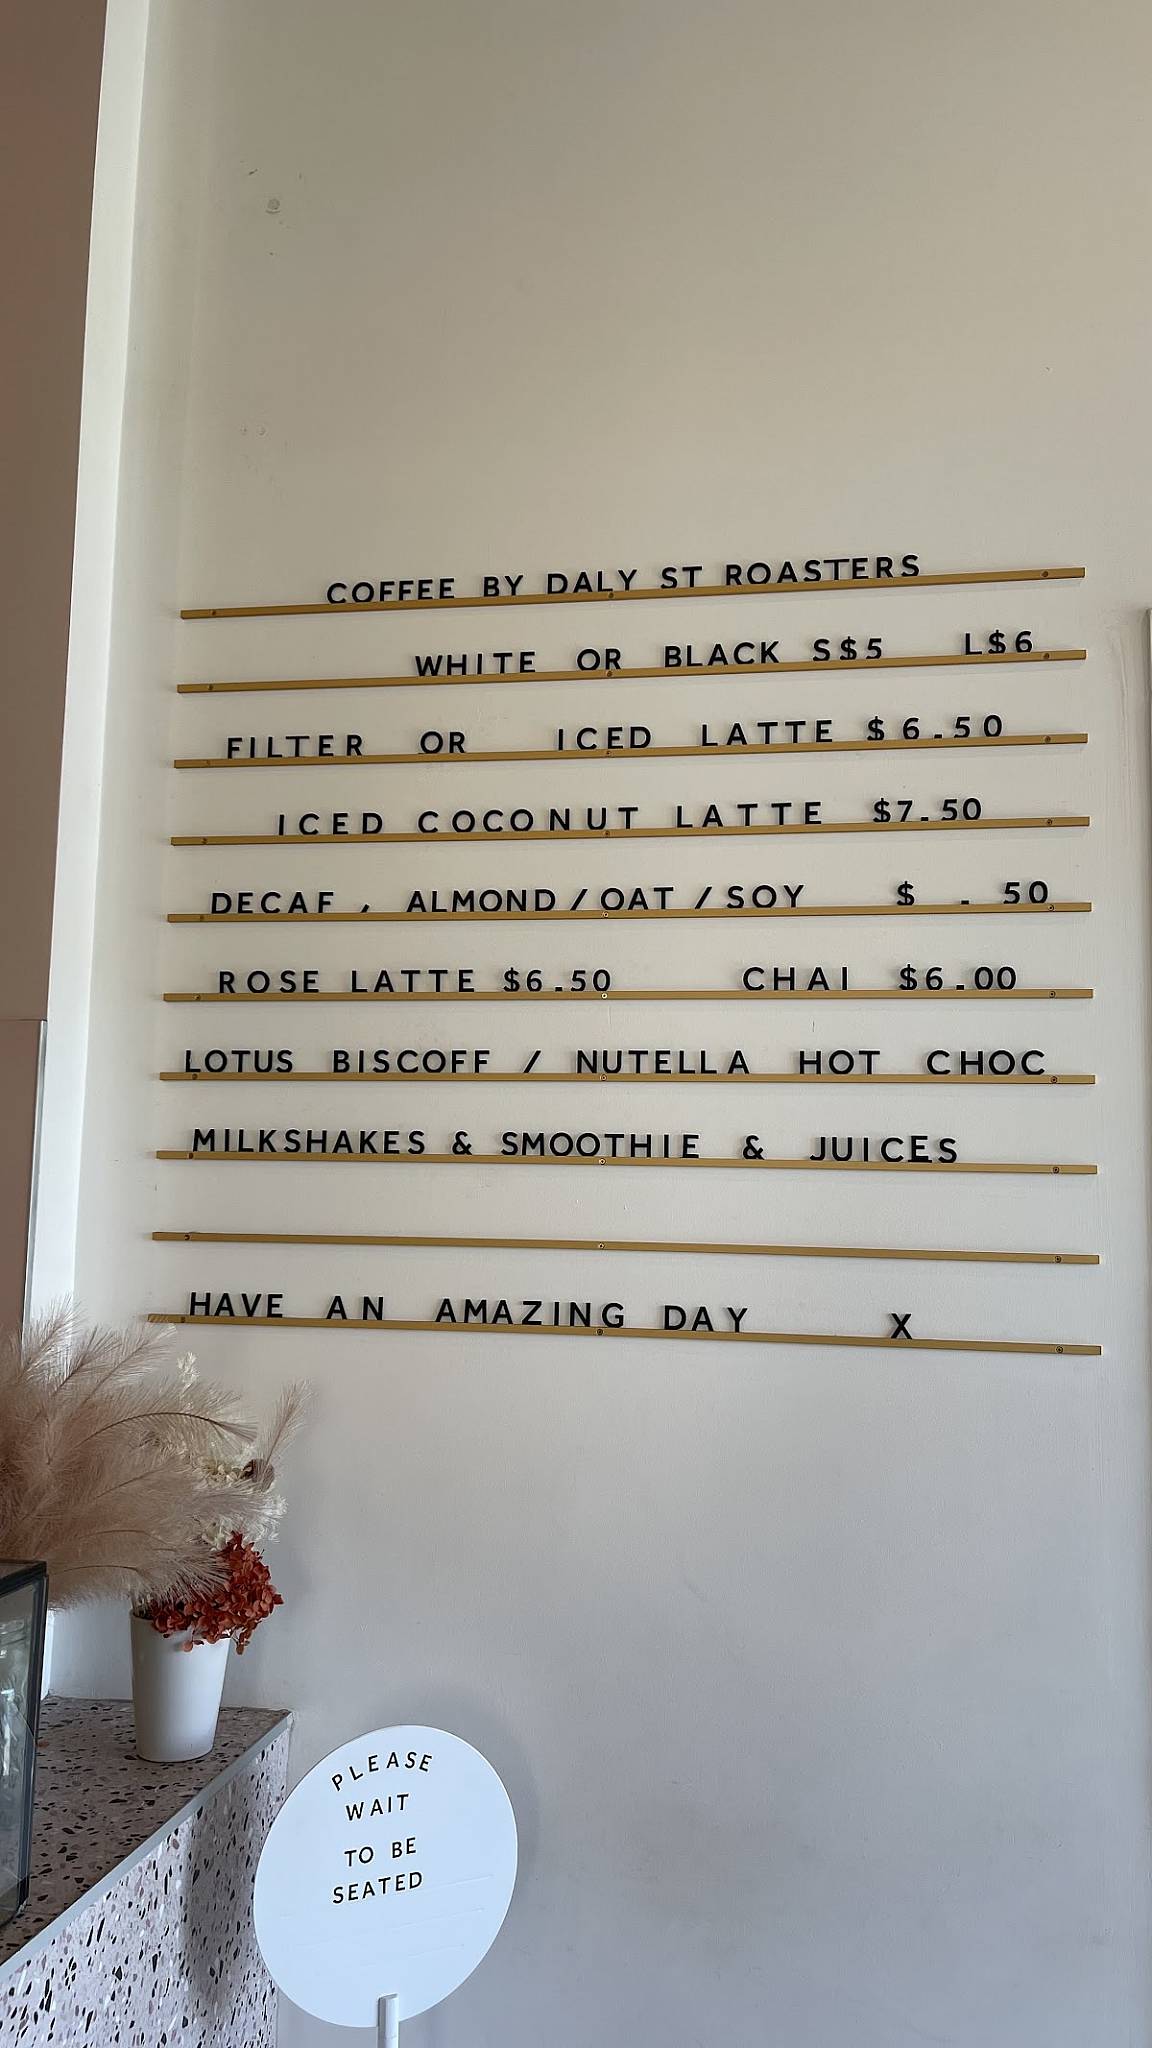 COFFEE BY DALY ST ROASTERS
WHITE OR BLACK S$5 L$6
FILTER OR ICED LATTE $6.50
ICED COCONUT LATTE $7.50
DECAF , ALMOND/OAT/SOY $ . 50
ROSE LATTE $6.50 CHAI $6.00
LOTUS BISCOFF / NUTELLA HOT CHOC
MILKSHAKES & SMOOTHIE & JUICES
HAVE AN AMAZING DAY X
PLEASE
WAIT
TO BE
SEATED